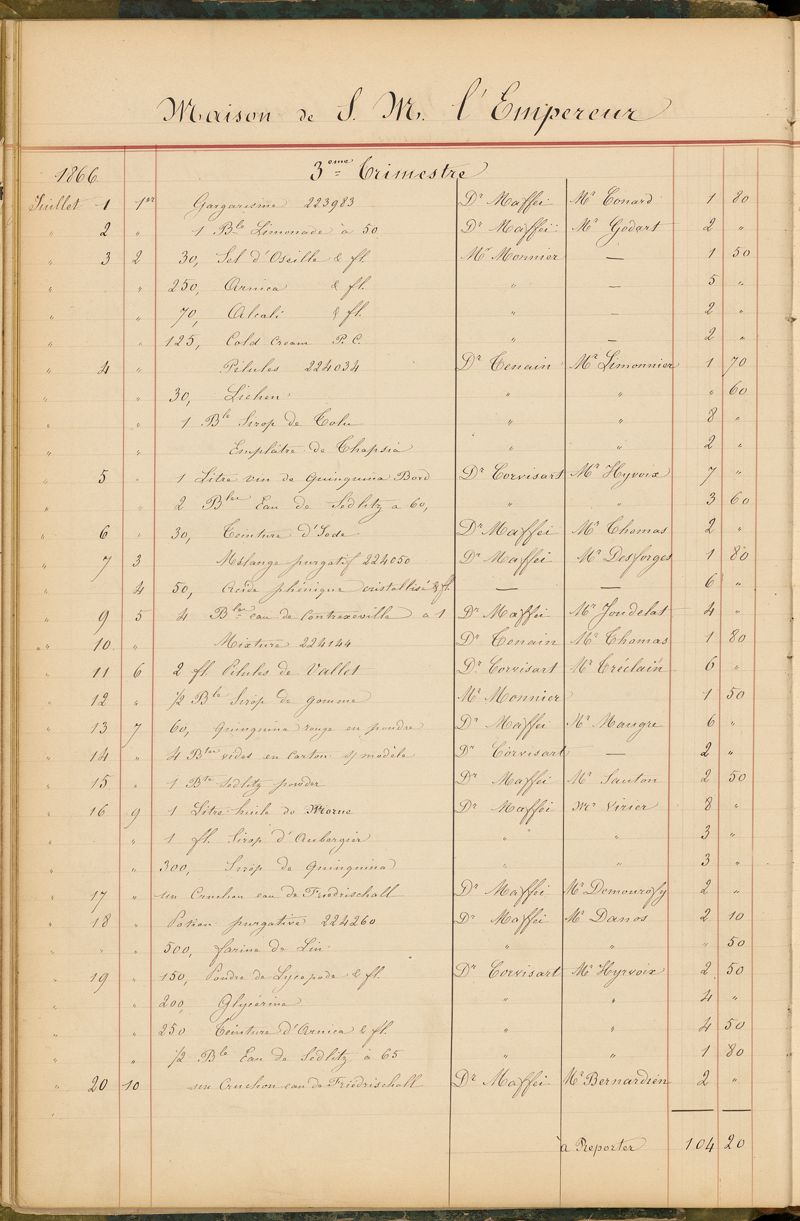 Maison de S. M. l'Empereur
1866 3eme Trimestre
Juillet 1 1er Gargarisme 223983 Dr Maffei Mr Conard 1 80
" 2 " 1 Ble Limonade à 50 Dr Maffei Mr Godart 2 "
" 3 2 30, Sel d'Oseille & fl. Mr Monnier — 1 50
" " 250, Arnica & fl. " — 5 "
" " 70, Alcali & fl. " — 2 "
" " 125, Cold Cream P. C. " — 2 "
" 4 " Pilules 224034 Dr Tenain Mr Limonnier 1 70
" " 30, Lichen " " " 60
" " 1 Ble Sirop de Tolu " " 8 "
" " Emplâtre de Thapsia " " 2 "
" 5 " 1 Litre vin de Quinquina Bord Dr Corvisart Mr Hyrvoix 7 "
" " 2 Bles Eau de Sedlitz a 60, " " 3 60
" 6 " 30, Teinture d'Iode Dr Maffei Mr Thomas 2 "
" 7 3 Mélange purgatif 224050 Dr Maffei Mr Desforges 1 80
" 4 50, Acide phénique cristallisé & fl. — — 6 "
" 9 5 4 Bles eau de Contrexeville à 1 Dr Maffei Mr Joudelat 4 "
" 10 " Mixture 224144 Dr Tenain Mr Thomas 1 80
" 11 6 2 fl Pilules de Vallet Dr Corvisart Mr Tréclain 6 "
" 12 " 1/2 Ble Sirop de gomme Mr Monnier 1 50
" 13 7 60, Quinquina rouge en poudre Dr Maffei Mr Maugre 6 "
" 14 " 4 Btes vides en carton s/ modèle Dr Corvisart — 2 "
" 15 " 1 Bte Sedlitz powder Dr Maffei Mr Sauton 2 50
" 16 9 1 Litre huile de Morue Dr Maffei Mr Virier 8 "
" " 1 fl. Sirop d'Aubergier " " 3 "
" " 300, Sirop de Quinquina " " 3 "
" 17 " un Cruchon eau de Friedrischall Dr Maffei Mr Demourosy 2 "
" 18 " Potion purgative 224260 Dr Maffei Mr Danos 2 10
" " " 500, farine de Lin " " " 50
" 19 " 150, Poudre de Lycopode & fl. Dr Corvisart Mr Hyrvoix 2 50
" " 200, Glycérine " " 4 "
" " 250 Teinture d'Arnica & fl. " " 4 50
" " 1/2 Ble Eau de Sedlitz à 65 " " 1 80
" 20 10 un Cruchon eau de Friedrischall Dr Maffei Mr Bernardien 2 "
"
à Reporter 104 20